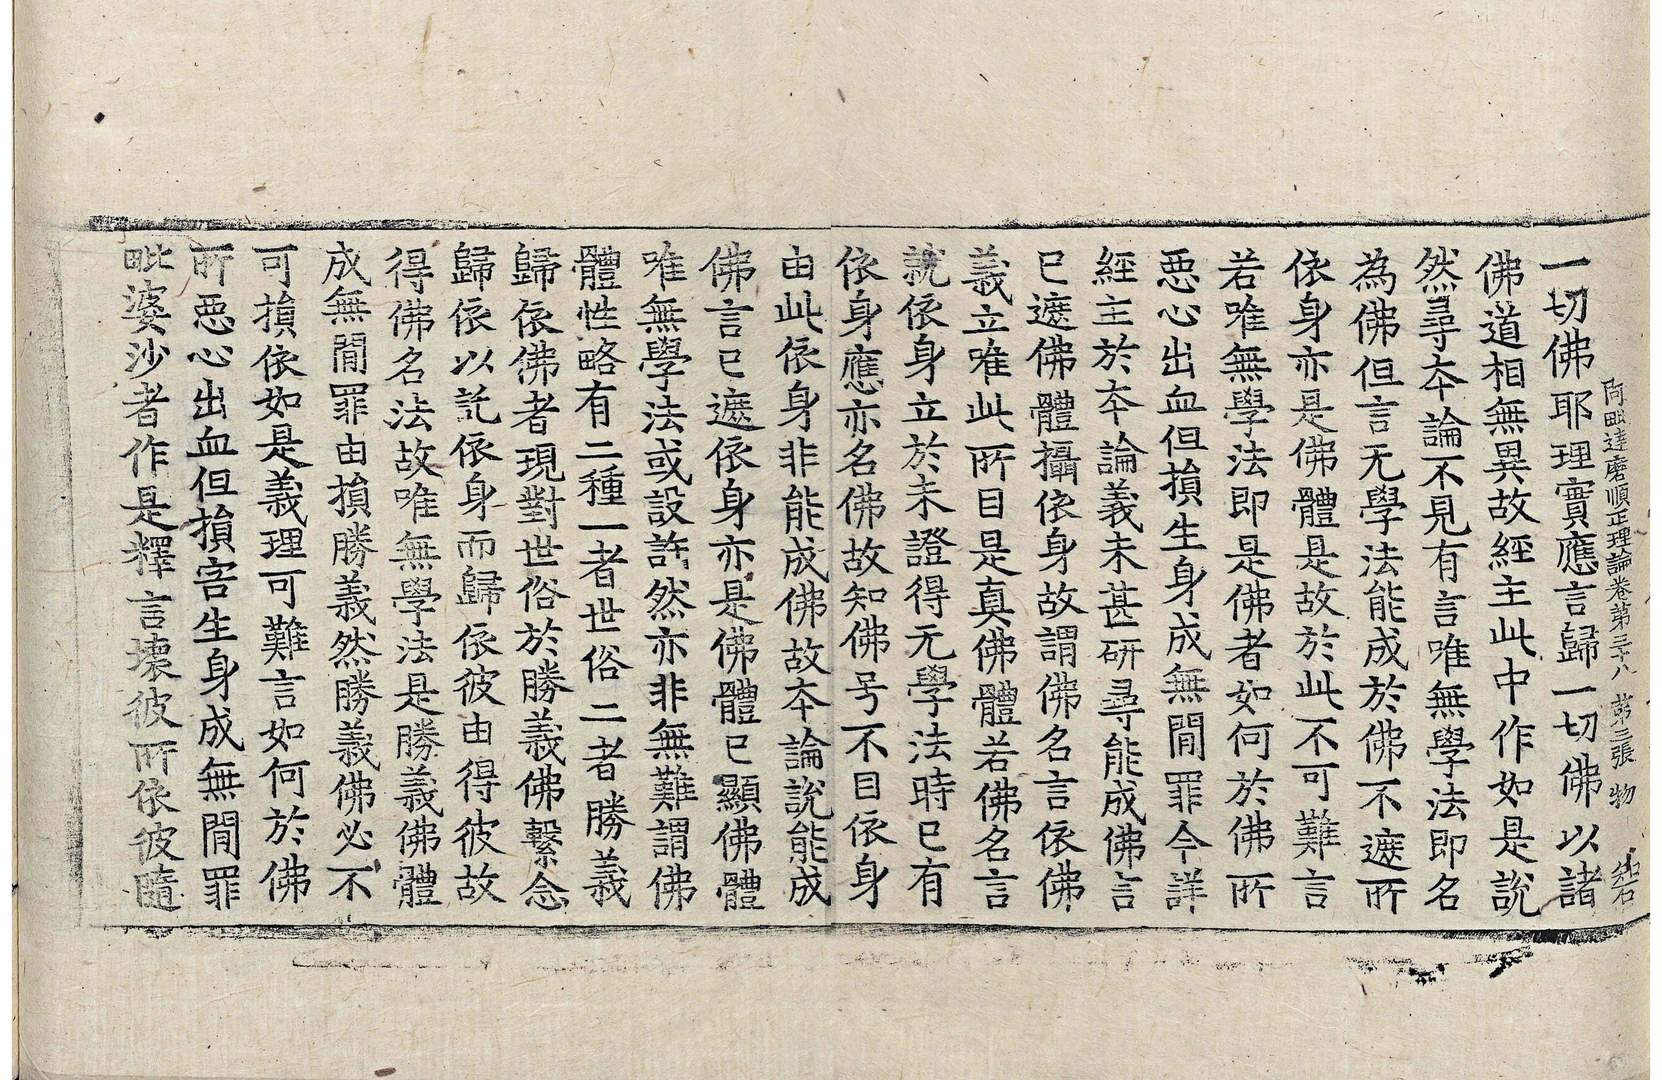 阿毗達磨順正理論卷第三十八 第三張 物
一切佛耶理實應言歸一切佛以諸
佛道相無異故經主此中作如是說
然尋本論不見有言唯無學法即名
為佛但言无學法能成於佛不遮所
依身亦是佛體是故於此不可難言
若唯無學法即是佛者如何於佛所
惡心出血但損生身成無間罪今詳
經主於本論義未甚研尋能成佛言
已遮佛體攝依身故謂佛名言依佛
義立唯此所目是真佛體若佛名言
說依身立於未證得无學法時已有
依身應亦名佛故知佛号不目依身
由此依身非能成佛故本論說能成
佛言已遮依身亦是佛體已顯佛體
唯無學法或設許然亦非無難謂佛
體性略有二種一者世俗二者勝義
歸依佛者現對世俗於勝義佛繫念
歸依以託依身而歸依彼由得彼故
得佛名法故唯無學法是勝義佛體
成無間罪由損勝義然勝義佛必不
可損依如是義理可難言如何於佛
所惡心出血但損害生身成無間罪
毗婆沙者作是釋言壞彼所依彼隨